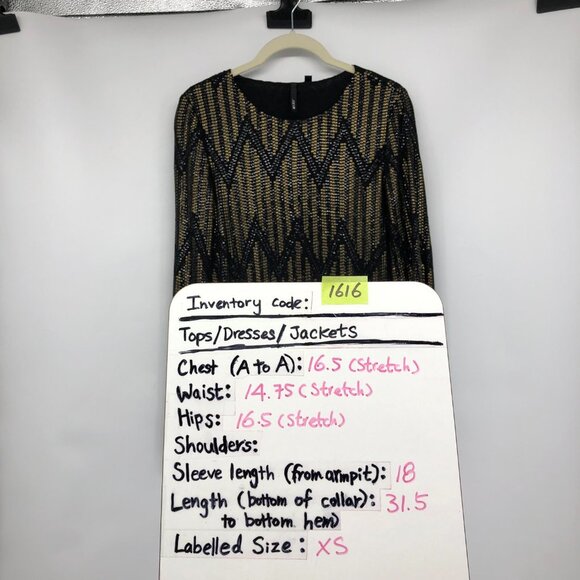 Inventory code: 1616
Tops/Dresses/Jackets
Chest (A to A): 16.5 (Stretch)
Waist: 14.75 (Stretch)
Hips: 16.5 (Stretch)
Shoulders:
Sleeve length (from armpit): 18
Length (bottom of collar): 31.5
to bottom hem)
Labelled Size: XS